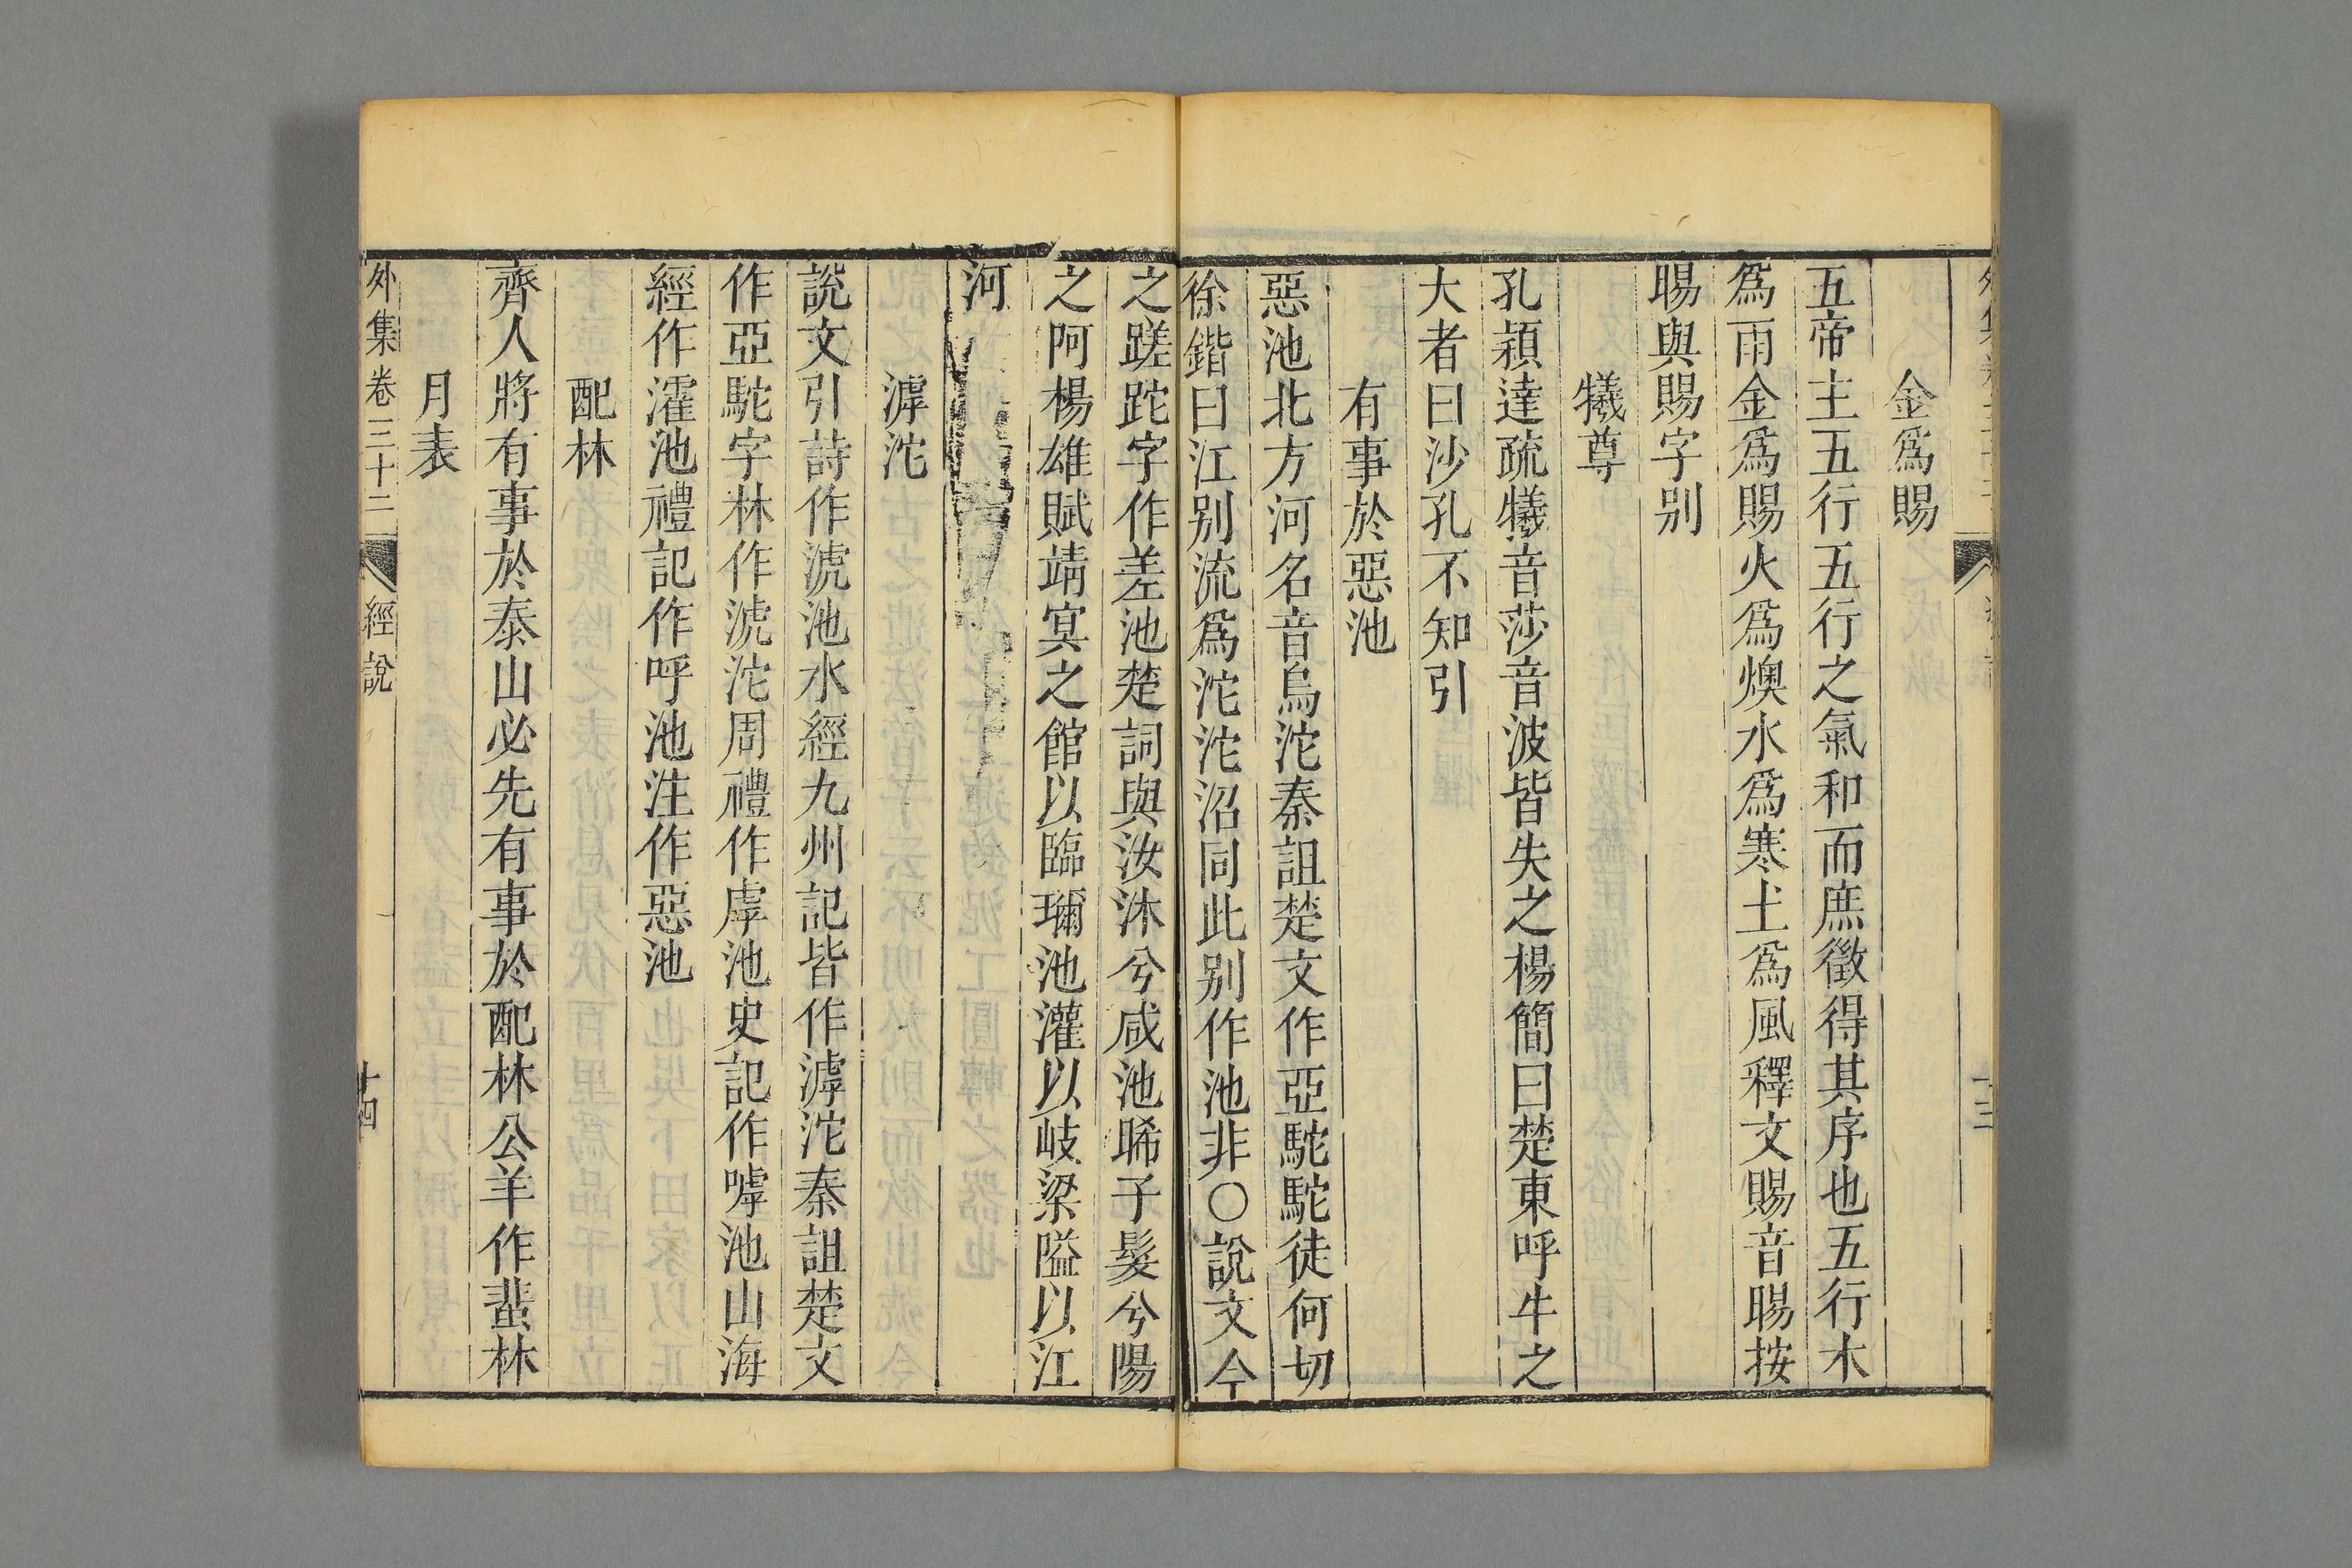 金爲賜
五帝主五行五行之氣和而庶徵得其序也五行木
爲雨金爲賜火爲燠水爲寒土爲風釋文賜音暘按
暘與賜字别
犧尊
孔穎達疏犧音莎音波皆失之楊簡曰楚東呼牛之
大者曰沙孔不知引
有事於惡池
惡池北方河名音烏沱秦詛楚文作亞駝駝徒何切
徐鍇曰江别流爲沱沱沼同此别作池非○說文今
之蹉跎字作差池楚詞與汝沐兮咸池晞子髮兮陽
之阿楊雄賦靖冥之館以臨瓓池灌以岐梁隘以江
河
滹沱
說文引詩作淲池水經九州記皆作滹沱秦詛楚文
作亞駝字林作淲沱周禮作虖池史記作嘑池山海
經作濩池禮記作呼池注作惡池
配林
齊人將有事於泰山必先有事於配林公羊作蜚林
月表
外集卷三十二 經說 十四